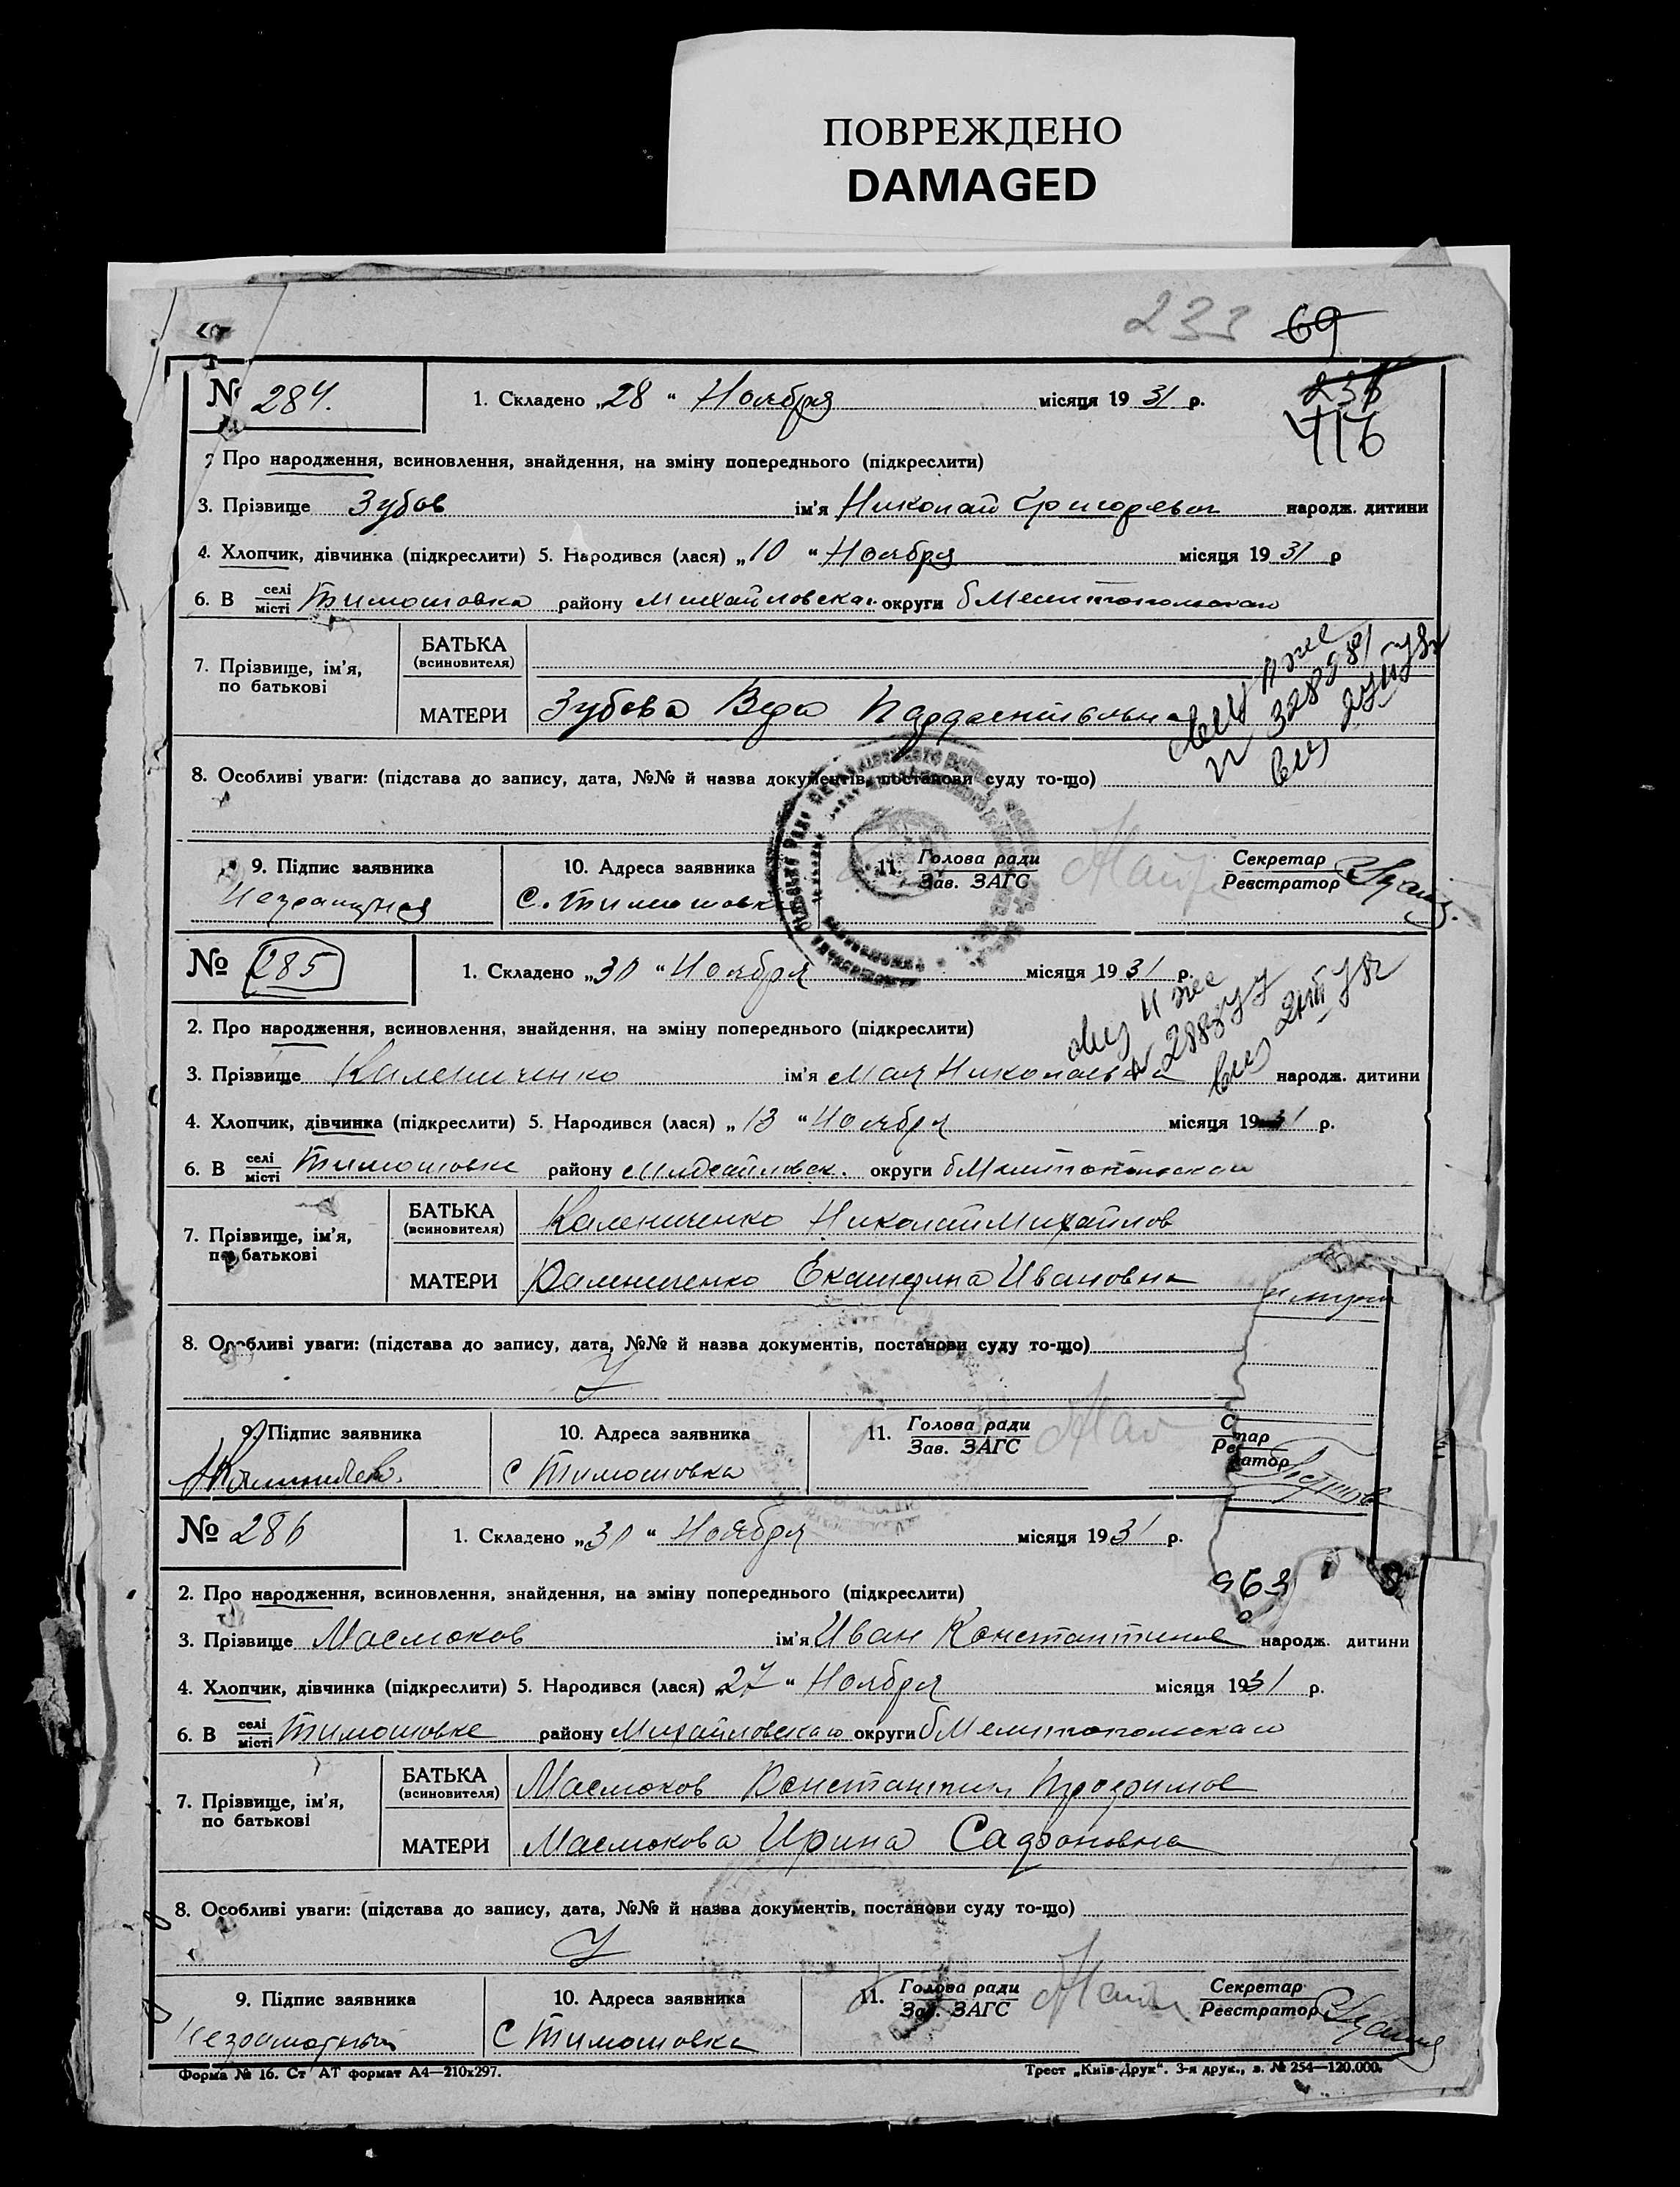 ПОВРЕЖДЕНО
DAMAGED
233 69
№ 284. 1. Складено „28“ Ноября місяця 1931 р.
416
Про народження, всиновлення, знайдення, на зміну попереднього (підкреслити)
3. Прізвище Зубов ім'я Николай Григоревич народж. дитини
4. Хлопчик, дівчинка (підкреслити) 5. Народився (лася) „10“ Ноября місяця 1931 р
6. В селі/місті Тимошовка району Михайловска. округи б Мелитопольскаго
7. Прізвище, ім'я, по батькові
БАТЬКА (всиновителя)
МАТЕРИ Зубова Вера
8. Особливі уваги: (підстава до запису, дата, №№ й назва документів, постанови суду то-що)
9. Підпис заявника 10. Адреса заявника 11. Голова ради/Зав. ЗАГС Секретар/Реєстратор
Неграмотная С. Тимошовка
№ 285 1. Складено „30“ Ноября місяця 1931 р.
2. Про народження, всиновлення, знайдення, на зміну попереднього (підкреслити)
3. Прізвище Калениченко ім'я Мая Николаевна народж. дитини
4. Хлопчик, дівчинка (підкреслити) 5. Народився (лася) „13“ Ноября місяця 1931 р.
6. В селі/місті Тимошовке району Михайловск. округи б Мелитопольскаго
7. Прізвище, ім'я, по батькові
БАТЬКА (всиновителя) Калениченко Николай Михайлов
МАТЕРИ Калениченко Екатерина Ивановна
8. Особливі уваги: (підстава до запису, дата, №№ й назва документів, постанови суду то-що)
9. Підпис заявника 10. Адреса заявника 11. Голова ради/Зав. ЗАГС
С Тимошовка
№ 286 1. Складено „30“ Ноября місяця 1931 р.
2. Про народження, всиновлення, знайдення, на зміну попереднього (підкреслити)
3. Прізвище Маслюков ім'я Иван Константинов народж. дитини
4. Хлопчик, дівчинка (підкреслити) 5. Народився (лася) „27“ Ноября місяця 1931 р.
6. В селі/місті Тимошовке району Михайловскаго округи б Мелитопольскаго
7. Прізвище, ім'я, по батькові
БАТЬКА (всиновителя) Маслюков Константин Трофимов
МАТЕРИ Маслюкова Ирина Сафроновна
8. Особливі уваги: (підстава до запису, дата, №№ й назва документів, постанови суду то-що)
9. Підпис заявника 10. Адреса заявника 11. Голова ради/Зав. ЗАГС Секретар/Реєстратор
Неграмотный С Тимошовка
Форма № 16. Ст АТ формат А4—210х297. Трест „Київ-Друк“. 3-я друк., з. № 254—120.000.